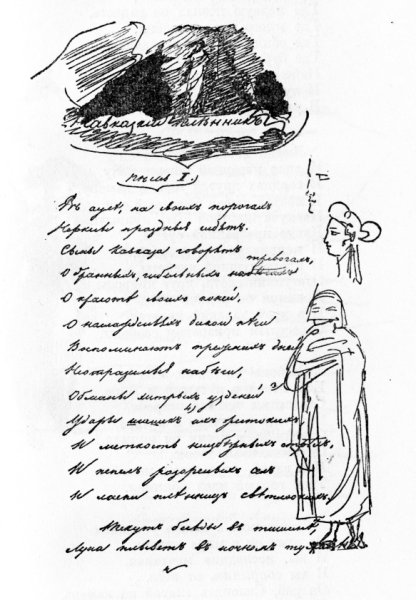 Кавказскій плѣнникъ
пѣснь I.
Въ аулѣ, на своихъ порогахъ
Черкесы праздные сидятъ.
Сыны Кавказа говорятъ
тревогахъ,
О бранныхъ, гибельныхъ
О красотѣ своихъ коней,
О наслажденьяхъ дикой нѣги
Воспоминаютъ прежнихъ дней
Неотразимые набѣги,
Обманы хитрыхъ узденей
Удары шашекъ ихъ жестокихъ
И меткость неизбѣжныхъ стрѣлъ,
И пепелъ разоренныхъ селъ
И ласки плѣнницъ
Текутъ бесѣды в тишинѣ,
Луна плыветъ в ночномъ туманѣ